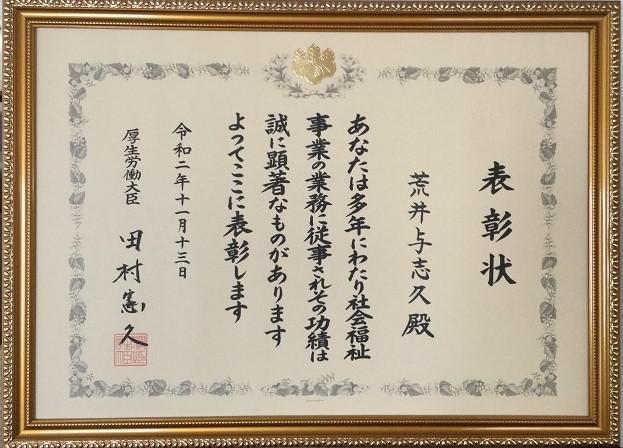 表彰状
荒井与志久殿
あなたは多年にわたり社会福祉
事業の業務に従事されその功績は
誠に顕著なものがあります
よってここに表彰します
令和二年十一月十三日
厚生労働大臣 田村憲久